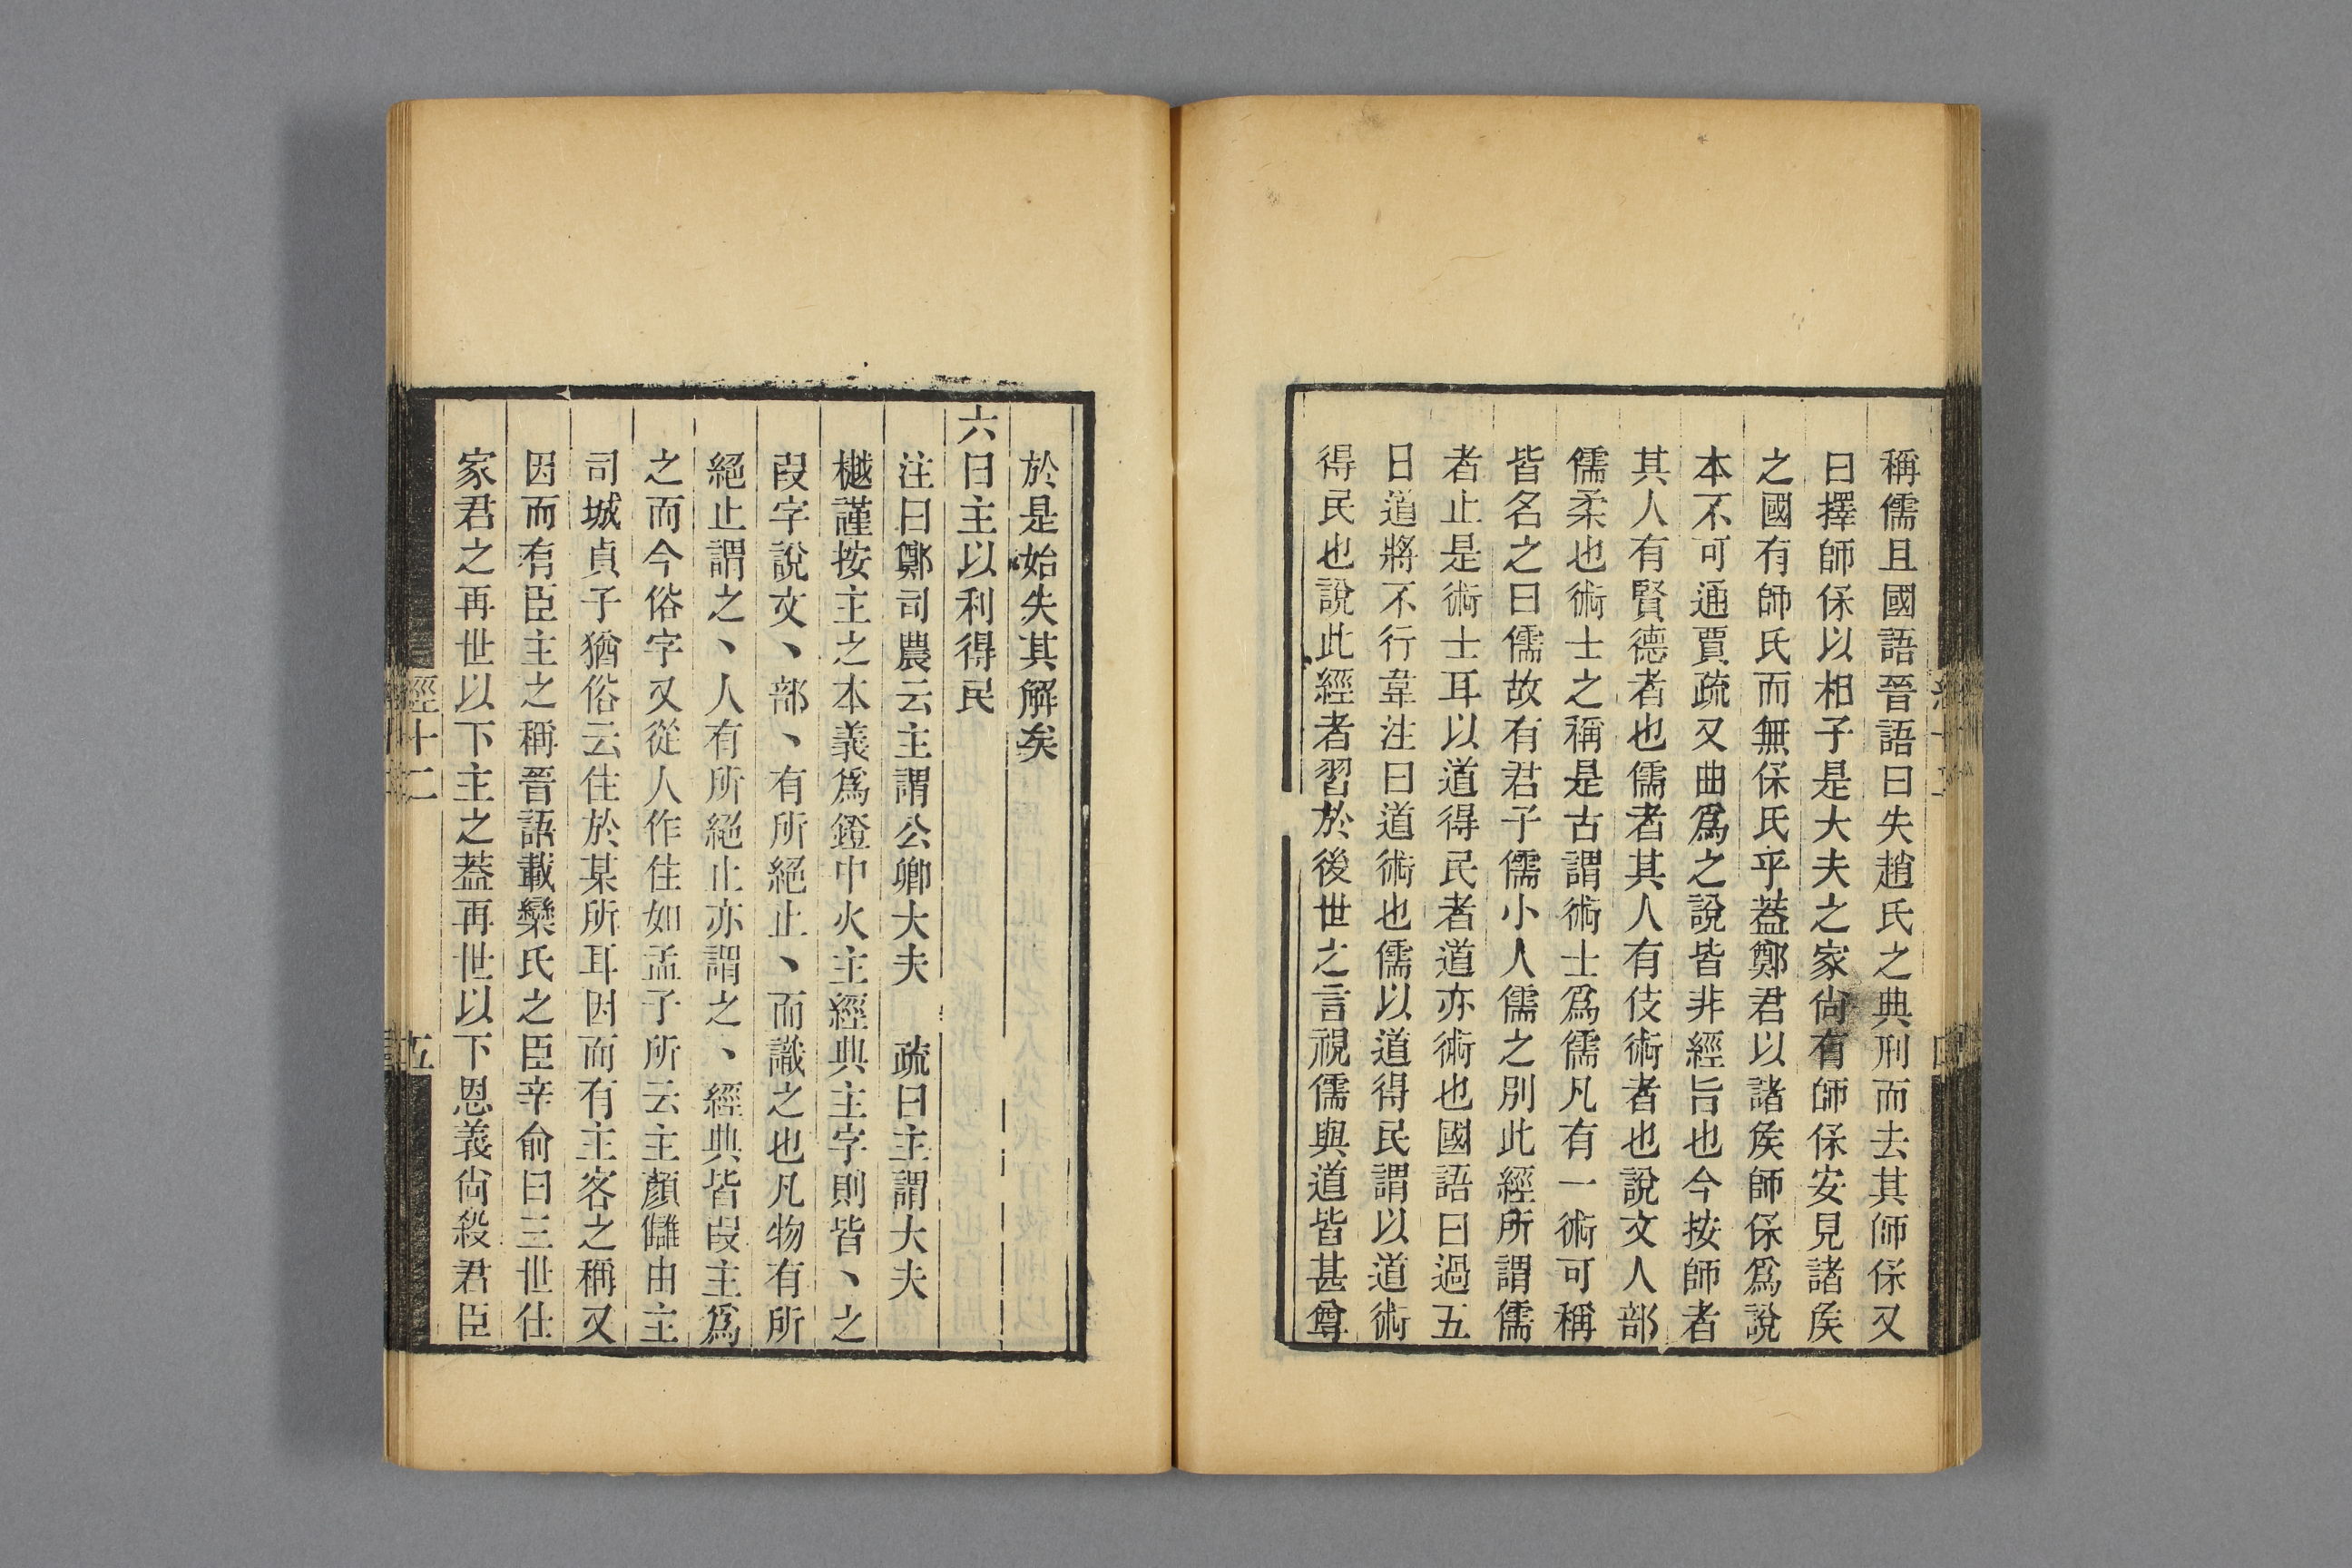 稱儒且國語晉語曰失趙氏之典刑而去其師保又
曰擇師保以相子是大夫之家尙有師保安見諸矦
之國有師氏而無保氏乎葢鄭君以諸矦師保爲說
本不可通賈疏又曲爲之說皆非經旨也今按師者
其人有賢德者也儒者其人有伎術者也說文人部
儒柔也術士之稱是古謂術士爲儒凡有一術可稱
皆名之曰儒故有君子儒小人儒之別此經所謂儒
者止是術士耳以道得民者道亦術也國語曰過五
日道將不行韋注曰道術也儒以道得民謂以道術
得民也說此經者習於後世之言視儒與道皆甚尊
於是始失其解矣
六曰主以利得民
注曰鄭司農云主謂公卿大夫　疏曰主謂大夫
樾謹按主之本義爲鐙中火主經典主字則皆丶之
叚字說文丶部丶有所絕止丶而識之也凡物有所
絕止謂之丶人有所絕止亦謂之丶經典皆叚主爲
之而今俗字又從人作住如孟子所云主顏讎由主
司城貞子猶俗云住於某所耳因而有主客之稱又
因而有臣主之稱晉語載欒氏之臣辛俞曰三世仕
家君之再世以下主之葢再世以下恩義尙殺君臣
經十二
五